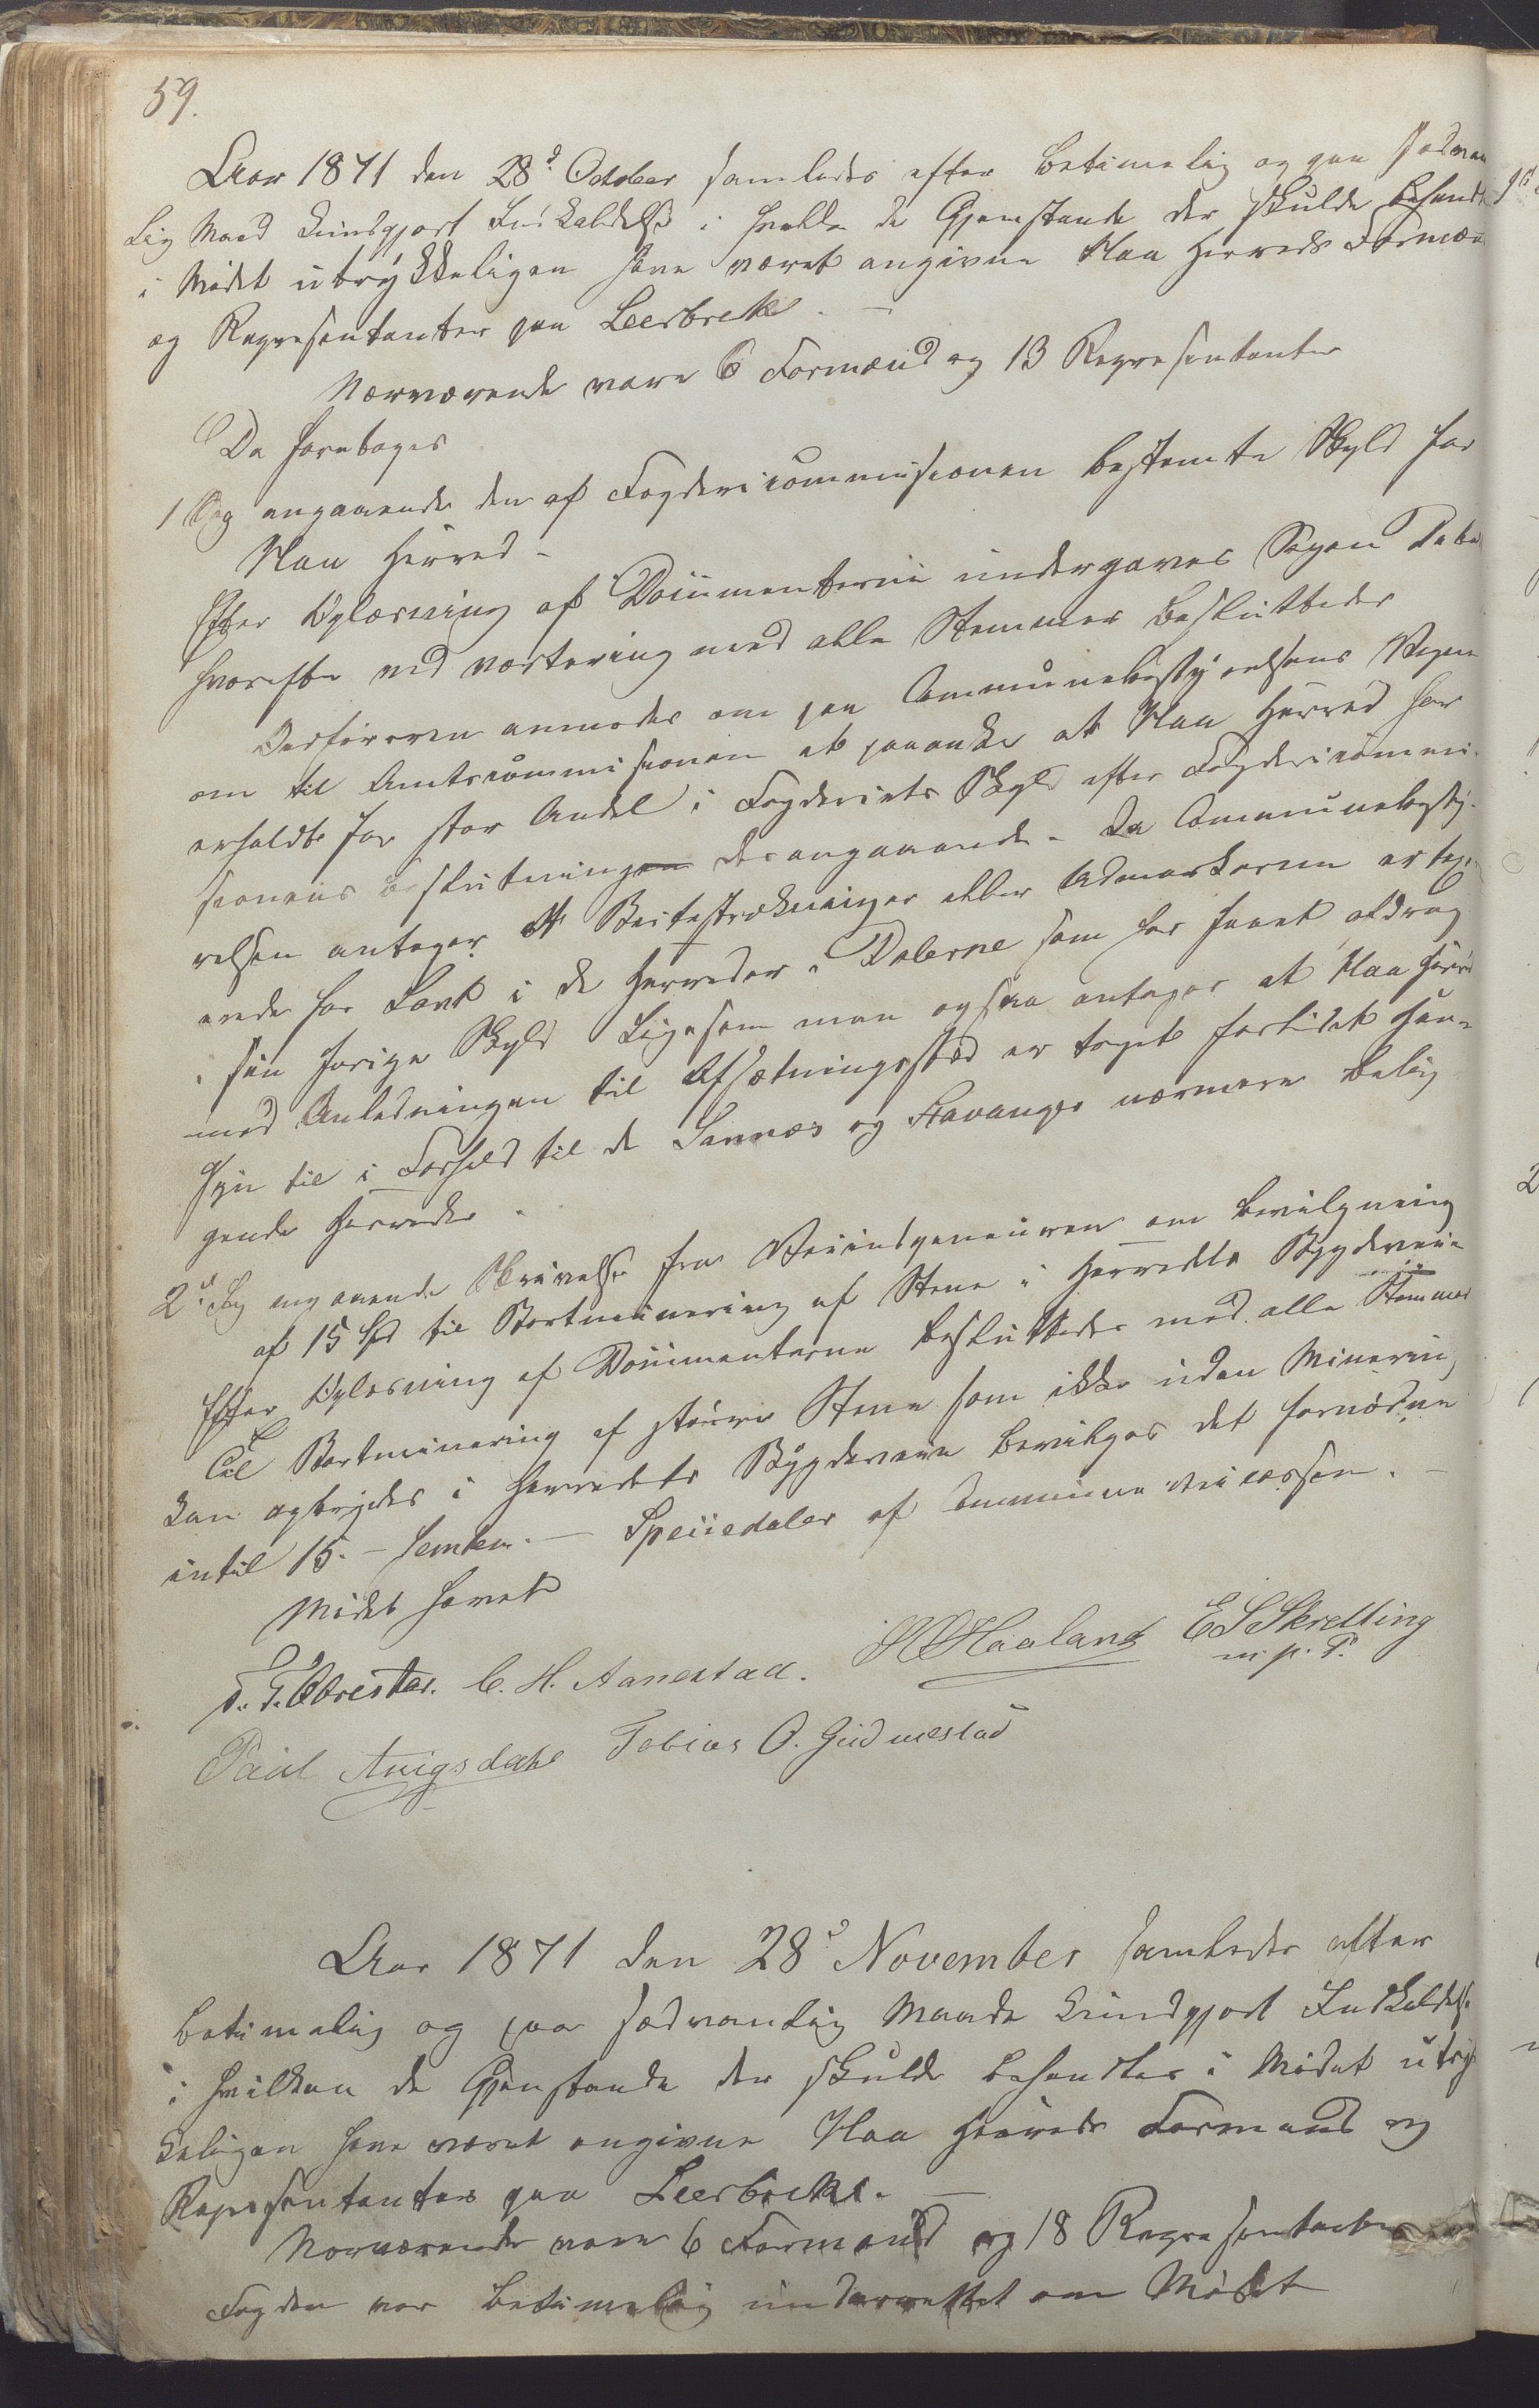 59.
Aar 1871 den 28d October samledes efter betimelig og paa sædvan
lig Maad kundgjort Indkaldelse i hvilke de Gjenstande der skulde behandl
i Mødet utrykkeligen have været angivne Haa Herreds Formæn
og Representanter paa Leerbrek. —
Nærværende vare 6 Formænd og 13 Representanter
Da foretoges
1 Sag angaaende den af Fogdericommissionen bestemte Skyld for
Haa Herred -
Efter Oplæsning af Documenterne undergaves Sagen Debat
hvorefter ved votering med alle Stemmer besluttedes
Ordføreren anmodes om paa Communebestyrelsens Vegne
om til Amtscommissionen at paaanke at Haa Herred har
erholdt for stor Andel i Fogderiets Skyld efter Fogdericommi-
sionens beslutning desangaaende. Da Communebesty-
relsen antager At Beitestrækninger eller Udmarkerne er tag-
erede for Lavt i de Herreder i Dalerne som har faaet afdrag
i sin forige Skyld Ligesom man ogsaa antager at Haa Herred
med Anledningen til Afsætningssted er taget forlidet Hen-
syn til i Forhold til de Sannæs og Stavanger nærmere belig
gende Herreder.
2d Sag angaaende Skrivelse fra Veiindgeneuren om bevilgning
af 15 Spd til Bortminering af Stene i Herredets Bygdeveie
Efter Oplæsning af Documenterne besluttedes med alle Stemmer
Til Bortminering af større Stene som ikke uden Minering
kan opbrydes i Herredets Bygdeveie bevilges det fornødne
intil 15. - femten. — Speciedaler af Communeveicassen. —
Mødet hævet
T. T. Obrestad. C. H. Aanestad. Haaland E S Skretting
m. p. P.
Paul Auigsdahl Tobias O. Gudmestad
Aar 1871 den 28d November samledes efter
betimelig og paa sædvanlig Maade kundgjort Indkaldelse
i hvilken de Gjenstande der skulde behandles i Mødet utryk
keligen have været angivne Haa Herreds Formænd og
Repesentanter paa Leerbrek. —
Nærværende vare 6 Formænd og 18 Representanter
Fogden var betimelig underrettet om Mødet